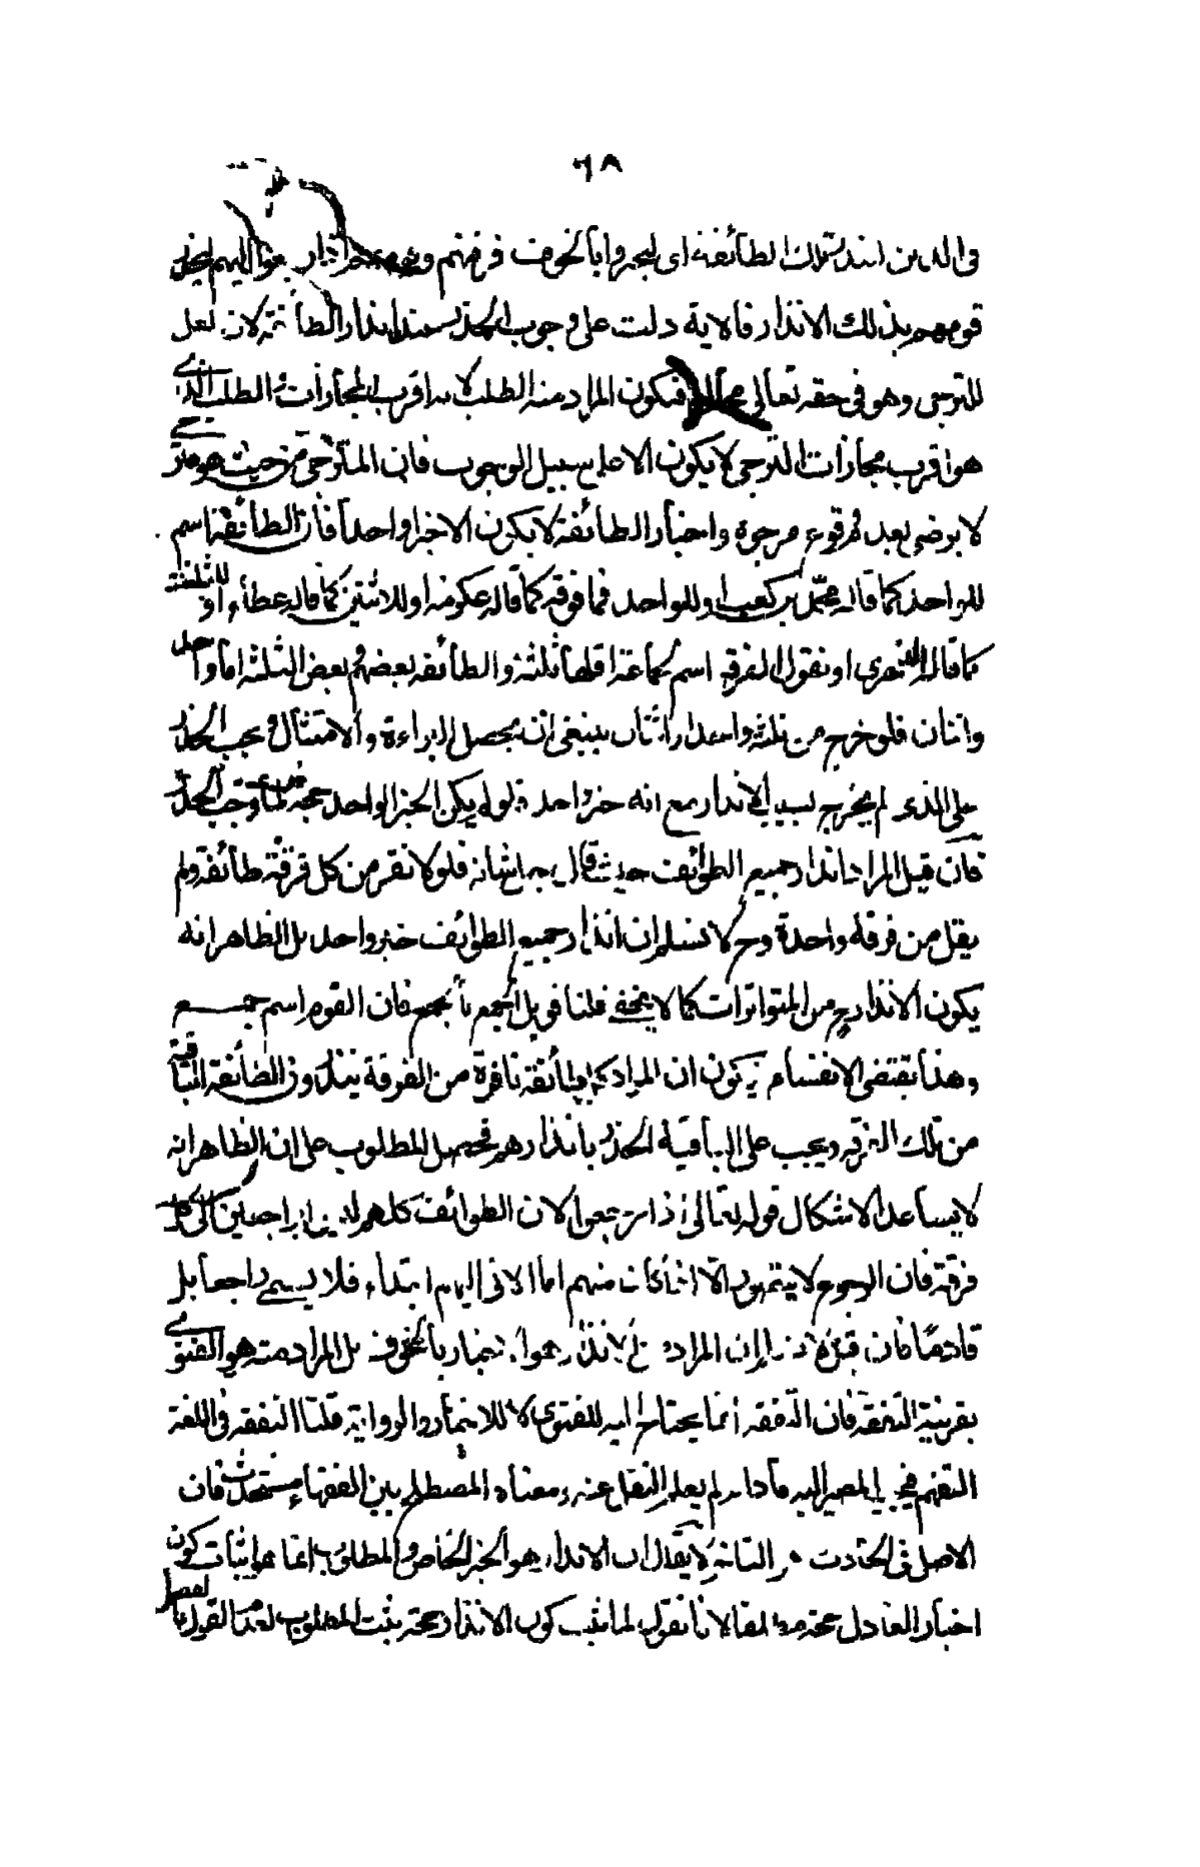 ٦٨
في الدين انذر تلك الطائفة اى ليخبروا بالخوف فرقتهم وينذروا اليهم ليحذر
قومهم بذلك الانذار فالاية دلت على وجوب الحذر عند انذار الطائفة لان لعل
للترجى وهو في حقه تعالى محال فيكون المراد منه الطلب لانه اقرب المجازات والطلب الذى
هو اقرب مجازات الترجى لا يكون الا على سبيل الوجوب فان المترجى من حيث هو مترجى
لا يرضى بعدم وقوع مرجوه واخبار الطائفة لا يكون الا خبرا واحدا فان الطائفة اسم
للواحد كما قاله محمد بن كعب او للواحد فما فوقه كما قاله عكرمة او للاثنين كما قاله عطاء او للثلثة
كما قاله الزهرى او نقول الفرقة اسم لجماعة اقلها ثلثة والطائفة بعضهم وبعض الثلثة اما واحد
واثنان فلو خرج من ثلثة واحد او اثنان ينبغى ان يحصل البراءة والامتثال ويجب الحذر
على الذى لم يخرج بسبب الانذار مع انه خبر واحد فلو لم يكن الخبر الواحد حجة لما وجب الحذر
فان قيل المراد انذار جميع الطوائف حيث قال جل شانه فلولا نفر من كل فرقة طائفة ولم
يقل من فرقة واحدة وح لا نسلم ان انذار جميع الطوائف خبر واحد بل الظاهر انه
يكون الانذار ح من المتواترات كما لا يخفى قلنا قوبل الجمع بالجمع فان القوم اسم جمع
وهذا يقتضى الانقسام فيكون ان المراد كل طائفة نافرة من الفرقة ينذرون الطائفة الباقية
من تلك الفرقة ويجب على الباقية الحذر بانذارهم فحصل المطلوب على ان الظاهر انه
لا يساعد الاشكال قوله تعالى اذا رجعوا لان الطوائف كلهم ليس ابراجعين الى كل
فرقة فان الرجوع لا يتصور الا اذا كان منهم اما الاتى اليهم ابتداء فلا يسمى راجعا بل
قادما فان قيل لا نسلم ان المراد من الانذار هو الاخبار بالخوف بل المراد منه هو الفتوى
بقرينة التفقه فان التفقه انما يحتاج اليه للفتوى لا للاخبار والرواية قلنا التفقه في اللغة
التفهم فيجب المصير اليه ما دام لم يعلم النقل عنه ومعناه المصطلح بين الفقهاء مستحدث فان
الاصل في الحادث هو التاخر لا يقال ان الانذار هو الخبر الخاص والمطلوب انما هو اثبات كون
اخبار العادل حجة مطلقا لانا نقول لما ثبت كون الانذار حجة يثبت المطلوب لعدم القول بالفصل